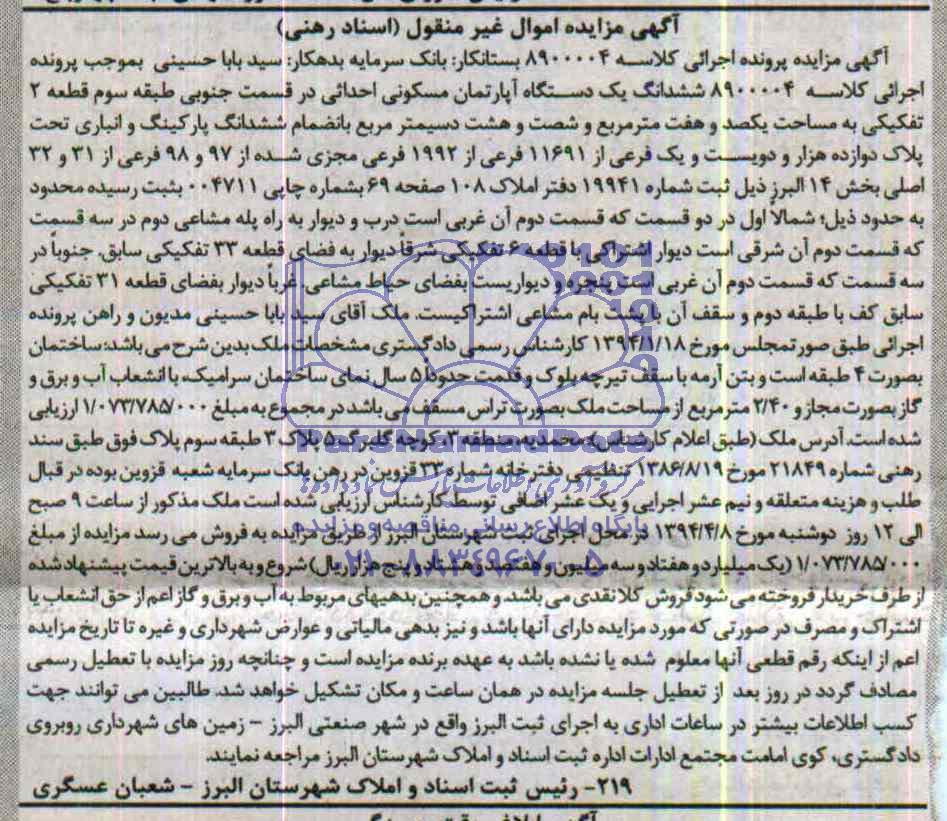 آگهی مزایده اموال غیر منقول (اسناد رهنی)
آگهی مزایده پرونده اجرائی کلاسه ۸۹۰۰۰۰۴ بستانکار: بانک سرمایه بدهکار: سید بابا حسینی بموجب پرونده
اجرائی کلاسه ۸۹۰۰۰۰۴ ششدانگ یک دستگاه آپارتمان مسکونی احداثی در قسمت جنوبی طبقه سوم قطعه ۲
تفکیکی به مساحت یکصد و هفت مترمربع و شصت و هشت دسیمتر مربع بانضمام ششدانگ پارکینگ و انباری تحت
پلاک دوازده هزار و دویست و یک فرعی از ۱۱۶۹۱ فرعی از ۱۹۹۲ فرعی مجزی شده از ۹۷ و ۹۸ فرعی از ۳۱ و ۳۲
اصلی بخش ۱۴ البرز ذیل ثبت شماره ۱۹۹۴۱ دفتر املاک ۱۰۸ صفحه ۶۹ بشماره چاپی ۰۰۴۷۱۱ بثبت رسیده محدود
به حدود ذیل؛ شمالاً اول در دو قسمت که قسمت دوم آن غربی است درب و دیوار به راه پله مشاعی دوم در سه قسمت
که قسمت دوم آن شرقی است دیوار اشتراکی با قطعه ۶ تفکیکی شرقاً دیوار به فضای قطعه ۳۳ تفکیکی سابق، جنوباً در
سه قسمت که قسمت دوم آن غربی است پنجره و دیواریست بفضای حیاط مشاعی، غرباً دیوار بفضای قطعه ۳۱ تفکیکی
سابق کف با طبقه دوم و سقف آن با پشت بام مشاعی اشتراکیست. ملک آقای سید بابا حسینی مدیون و راهن پرونده
اجرائی طبق صورتمجلس مورخ ۱۳۹۴/۱/۱۸ کارشناس رسمی دادگستری مشخصات ملک بدین شرح می باشد: ساختمان
بصورت ۴ طبقه است و بتن آرمه با سقف تیرچه بلوک و قدمت حدوداً ۵ سال نمای ساختمان سرامیک، با انشعاب آب و برق و
گاز بصورت مجاز و ۲/۴۰ مترمربع از مساحت ملک بصورت تراس مسقف می باشد در مجموع به مبلغ ۱/۰۷۳/۷۸۵/۰۰۰ ارزیابی
شده است. آدرس ملک (طبق اعلام کارشناس): محمدیه، منطقه ۳، کوچه گلبرگ ۵ پلاک ۳ طبقه سوم پلاک فوق طبق سند
رهنی شماره ۲۱۸۴۹ مورخ ۱۳۸۶/۸/۱۹ تنظیمی دفترخانه شماره ۳۳ قزوین در رهن بانک سرمایه شعبه قزوین بوده در قبال
طلب و هزینه متعلقه و نیم عشر اجرایی و یک عشر اضافی توسط کارشناس ارزیابی شده است ملک مذکور از ساعت ۹ صبح
الی ۱۲ روز دوشنبه مورخ ۱۳۹۴/۴/۸ در محل اجرای ثبت شهرستان البرز از طریق مزایده به فروش می رسد مزایده از مبلغ
۱/۰۷۳/۷۸۵/۰۰۰ (یک میلیارد و هفتاد و سه میلیون و هفتصد و هشتاد و پنج هزار ریال) شروع و به بالاترین قیمت پیشنهاد شده
از طرف خریدار فروخته می شود فروش کلا نقدی می باشد و همچنین بدهیهای مربوط به آب و برق و گاز اعم از حق انشعاب یا
اشتراک و مصرف در صورتی که مورد مزایده دارای آنها باشد و نیز بدهی مالیاتی و عوارض شهرداری و غیره تا تاریخ مزایده
اعم از اینکه رقم قطعی آنها معلوم شده یا نشده باشد به عهده برنده مزایده است و چنانچه روز مزایده با تعطیل رسمی
مصادف گردد در روز بعد از تعطیل جلسه مزایده در همان ساعت و مکان تشکیل خواهد شد. طالبین می توانند جهت
کسب اطلاعات بیشتر در ساعات اداری به اجرای ثبت البرز واقع در شهر صنعتی البرز - زمین های شهرداری روبروی
دادگستری، کوی امامت مجتمع ادارات اداره ثبت اسناد و املاک شهرستان البرز مراجعه نمایند.
۲۱۹- رئیس ثبت اسناد و املاک شهرستان البرز - شعبان عسگری
ParsNamadData
پایگاه اطلاع رسانی مناقصه و مزایده
۰۲۱-۸۸۳۴۹۶۷۰-۵